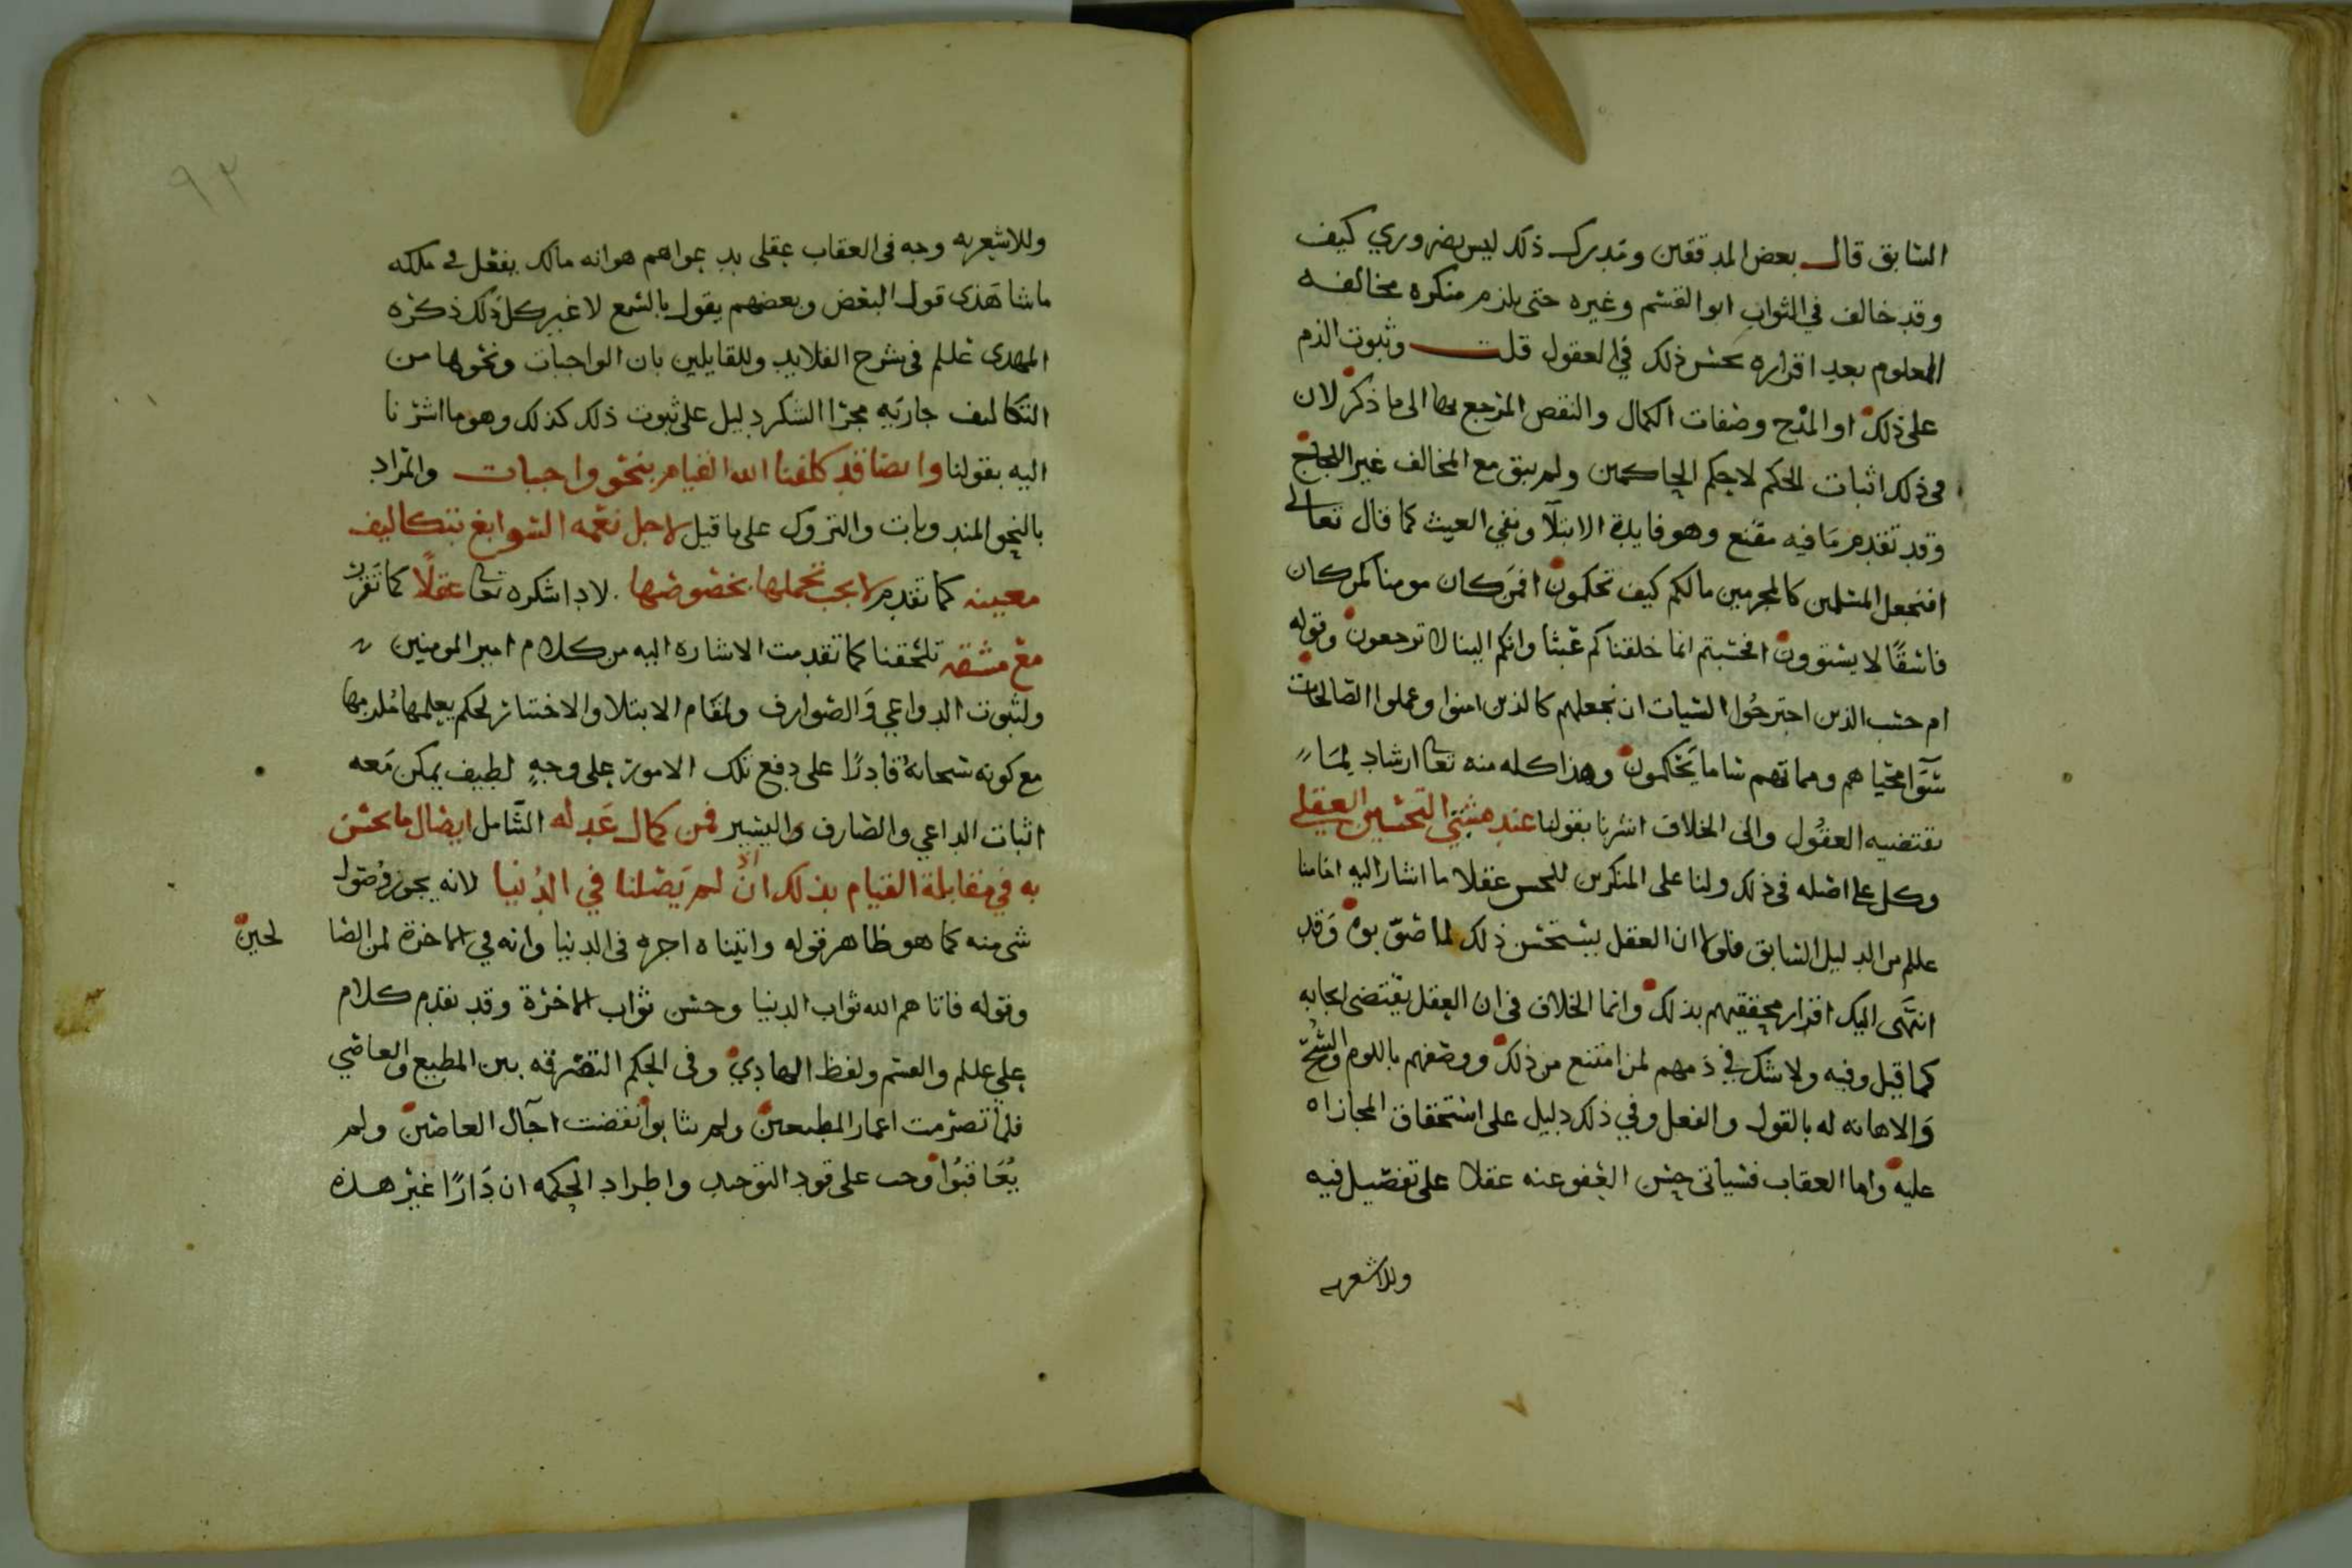 السابق قال بعض المدققين ومدرك ذلك ليس بضروري كيف
وقد خالف في الثواب ابو القسم وغيره حتى يلزم منكره مخالفه
المعلوم بعد اقراره بحسن ذلك في العقول قلت وثبوت الذم
على ذلك او المدح وصفات الكمال والنقص المرجع بها الى ما ذكر لان
في ذلك اثبات الحكم لاحكم الحاكمين ولم يبق مع المخالف غير اللجاج
وقد تقدم ما فيه مقنع وهو فايدة الابتلآ ونفي العبث كما قال تعالى
افنجعل المسلمين كالمجرمين مالكم كيف تحكمون افمن كان مومنا كمن كان
فاسقًا لا يستوون افحسبتم انما خلقناكم عبثا وانكم الينا لا ترجعون وقوله
ام حسب الذين اجترحوا السيات ان نجعلهم كالذين امنوا وعملوا الصالحات
سوآ محياهم ومماتهم سا ما يحكمون وهذا كله منه تعا ارشاد لما
تقتضيه العقول والى الخلاف اشرنا بقولنا عند مثبتي التحسين العقلي
وكل على اصله في ذلك ولنا على المنكرين للحسن عقلا ما اشار اليه امامنا
علم من الدليل السابق فلولا ان العقل يستحسن ذلك لما صوبوه وقد
انتهى اليك اقرار محققيهم بذلك وانما الخلاف في ان العقل يقتضى ايجابه
كما قيل وفيه ولا شك في ذمهم لمن امتنع من ذلك ووصفهم باللوم والشح
والاهانه له بالقول والفعل وفي ذلك دليل على استحقاق المجازاه
عليه واما العقاب فسياتى حسن العفو عنه عقلا على تفصيل فيه
وللاشعريه
٩٢
وللاشعريه وجه في العقاب عقلى بدعواهم هو انه مالك يفعل في ملكه
ماشا هذى قول البعض وبعضهم يقول بالسمع لا غير كل ذلك ذكره
المهدى علم في شرح القلايد وللقايلين بان الواجبات ونحوها من
التكاليف جاريه مجرا الشكر دليل على ثبوت ذلك كذلك وهو ما اشرنا
اليه بقولنا وايضا فقد كلفنا الله القيام بنحو واجبات والمراد
بالنحو المندوبات والتروك على ما قيل لاجل نعمه السوابغ بتكاليف
معينه كما تقدم لا يجب تحملها بخصوصها لادا شكره تعا عقلًا كما تقرر
مع مشقه تلحقنا كما تقدمت الاشاره اليه من كلام امير المومنين
ولثبوت الدواعي والصوارف ولمقام الابتلا والاختبار لحكم يعلمها ملزمها
مع كونه سبحانهُ قادرًا على دفع تلك الامور على وجهٍ لطيف يمكن معه
اثبات الداعي والصارف واليسير فمن كمال عدله الشامل ايصال ما يحسن
به في مقابلة القيام بذلك ان لم يصلنا في الدُنيا لانه يجوز وصول
شى منه كما هو ظاهر قوله واتيناه اجره في الدنيا وانه في الاخرة لمن الصا لحين
وقوله فاتاهم الله ثواب الدنيا وحسن ثواب الاخرة وقد تقدم كلام
علي علم والقسم ولفظ الهادي وفى الحكم التفرقه بين المطيع والعاصي
فلما تصرمت اعمار المطيعين ولم يثابوا انقضت آجال العاصين ولم
يُعَاقبُوا وجب على قود التوحيد واطراد الحكمه ان دَارًا غير هذه